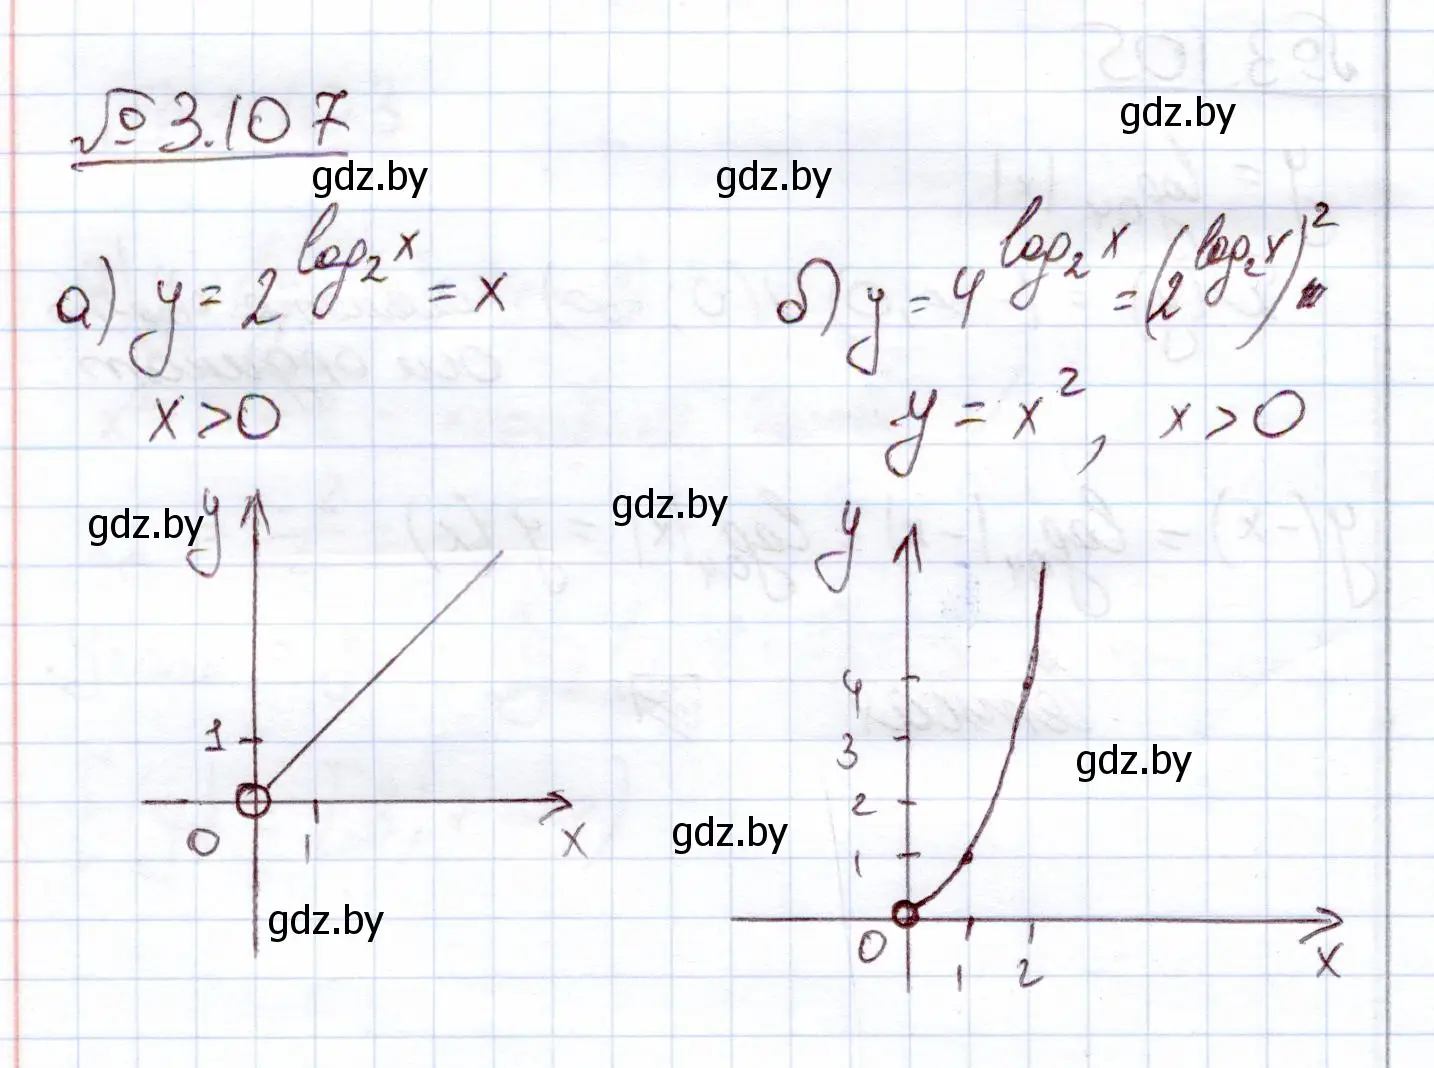 № 3.107
gdz.by
gdz.by
gdz.by
а) y = 2^{log_2 x} = x
x > 0
б) y = 4^{log_2 x} = (2^{log_2 x})^2
y = x^2, x > 0
gdz.by
y
1
0
1
x
gdz.by
gdz.by
y
4
3
2
1
0
1
2
x
gdz.by
gdz.by